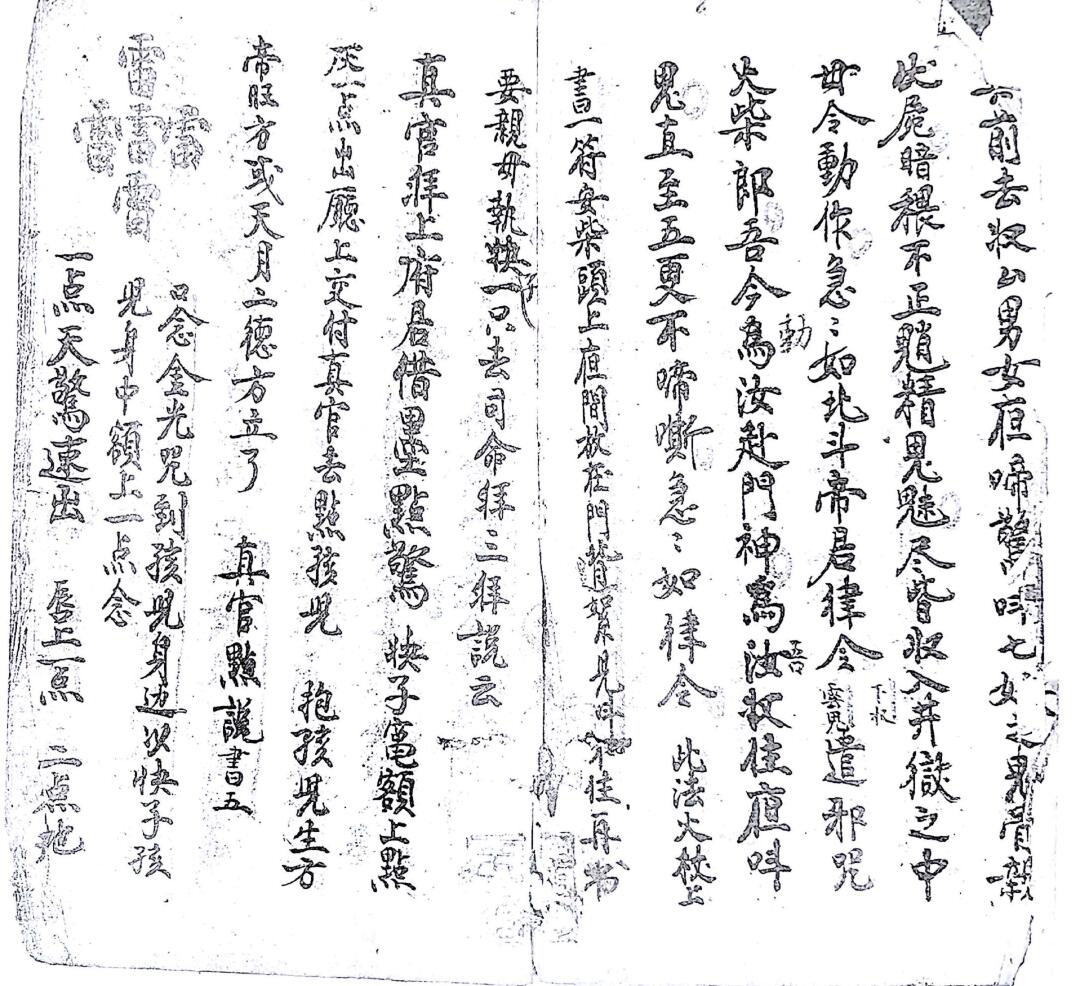 前去收公男女夜啼驚叫七女之鬼骨
此屍暗穢不正魈精鬼魅尽皆收入井獄之中
毋令動作急〻如北斗帝君律令 遣邪咒
火柴郎吾今為汝赴門神為汝收住夜叫
動
吾
鬼直至五更不啼嘶急〻如律令 此法火杖上
書一符安柴頭上夜間放在門背 見 不住再书
要親母執快子一只去司命拜三拜説云
真官拜上府君借墨點驚 快子竜額上點
灰一点出廳上交付真官去點孩児 抱孩児生方
帝旺方或天月二徳方立了 真官點説書五
雷雷雷雷雷
口念金光咒到孩児身边以快子孩
児身中額上一点念
一点天驚速出 唇上一点 二点地